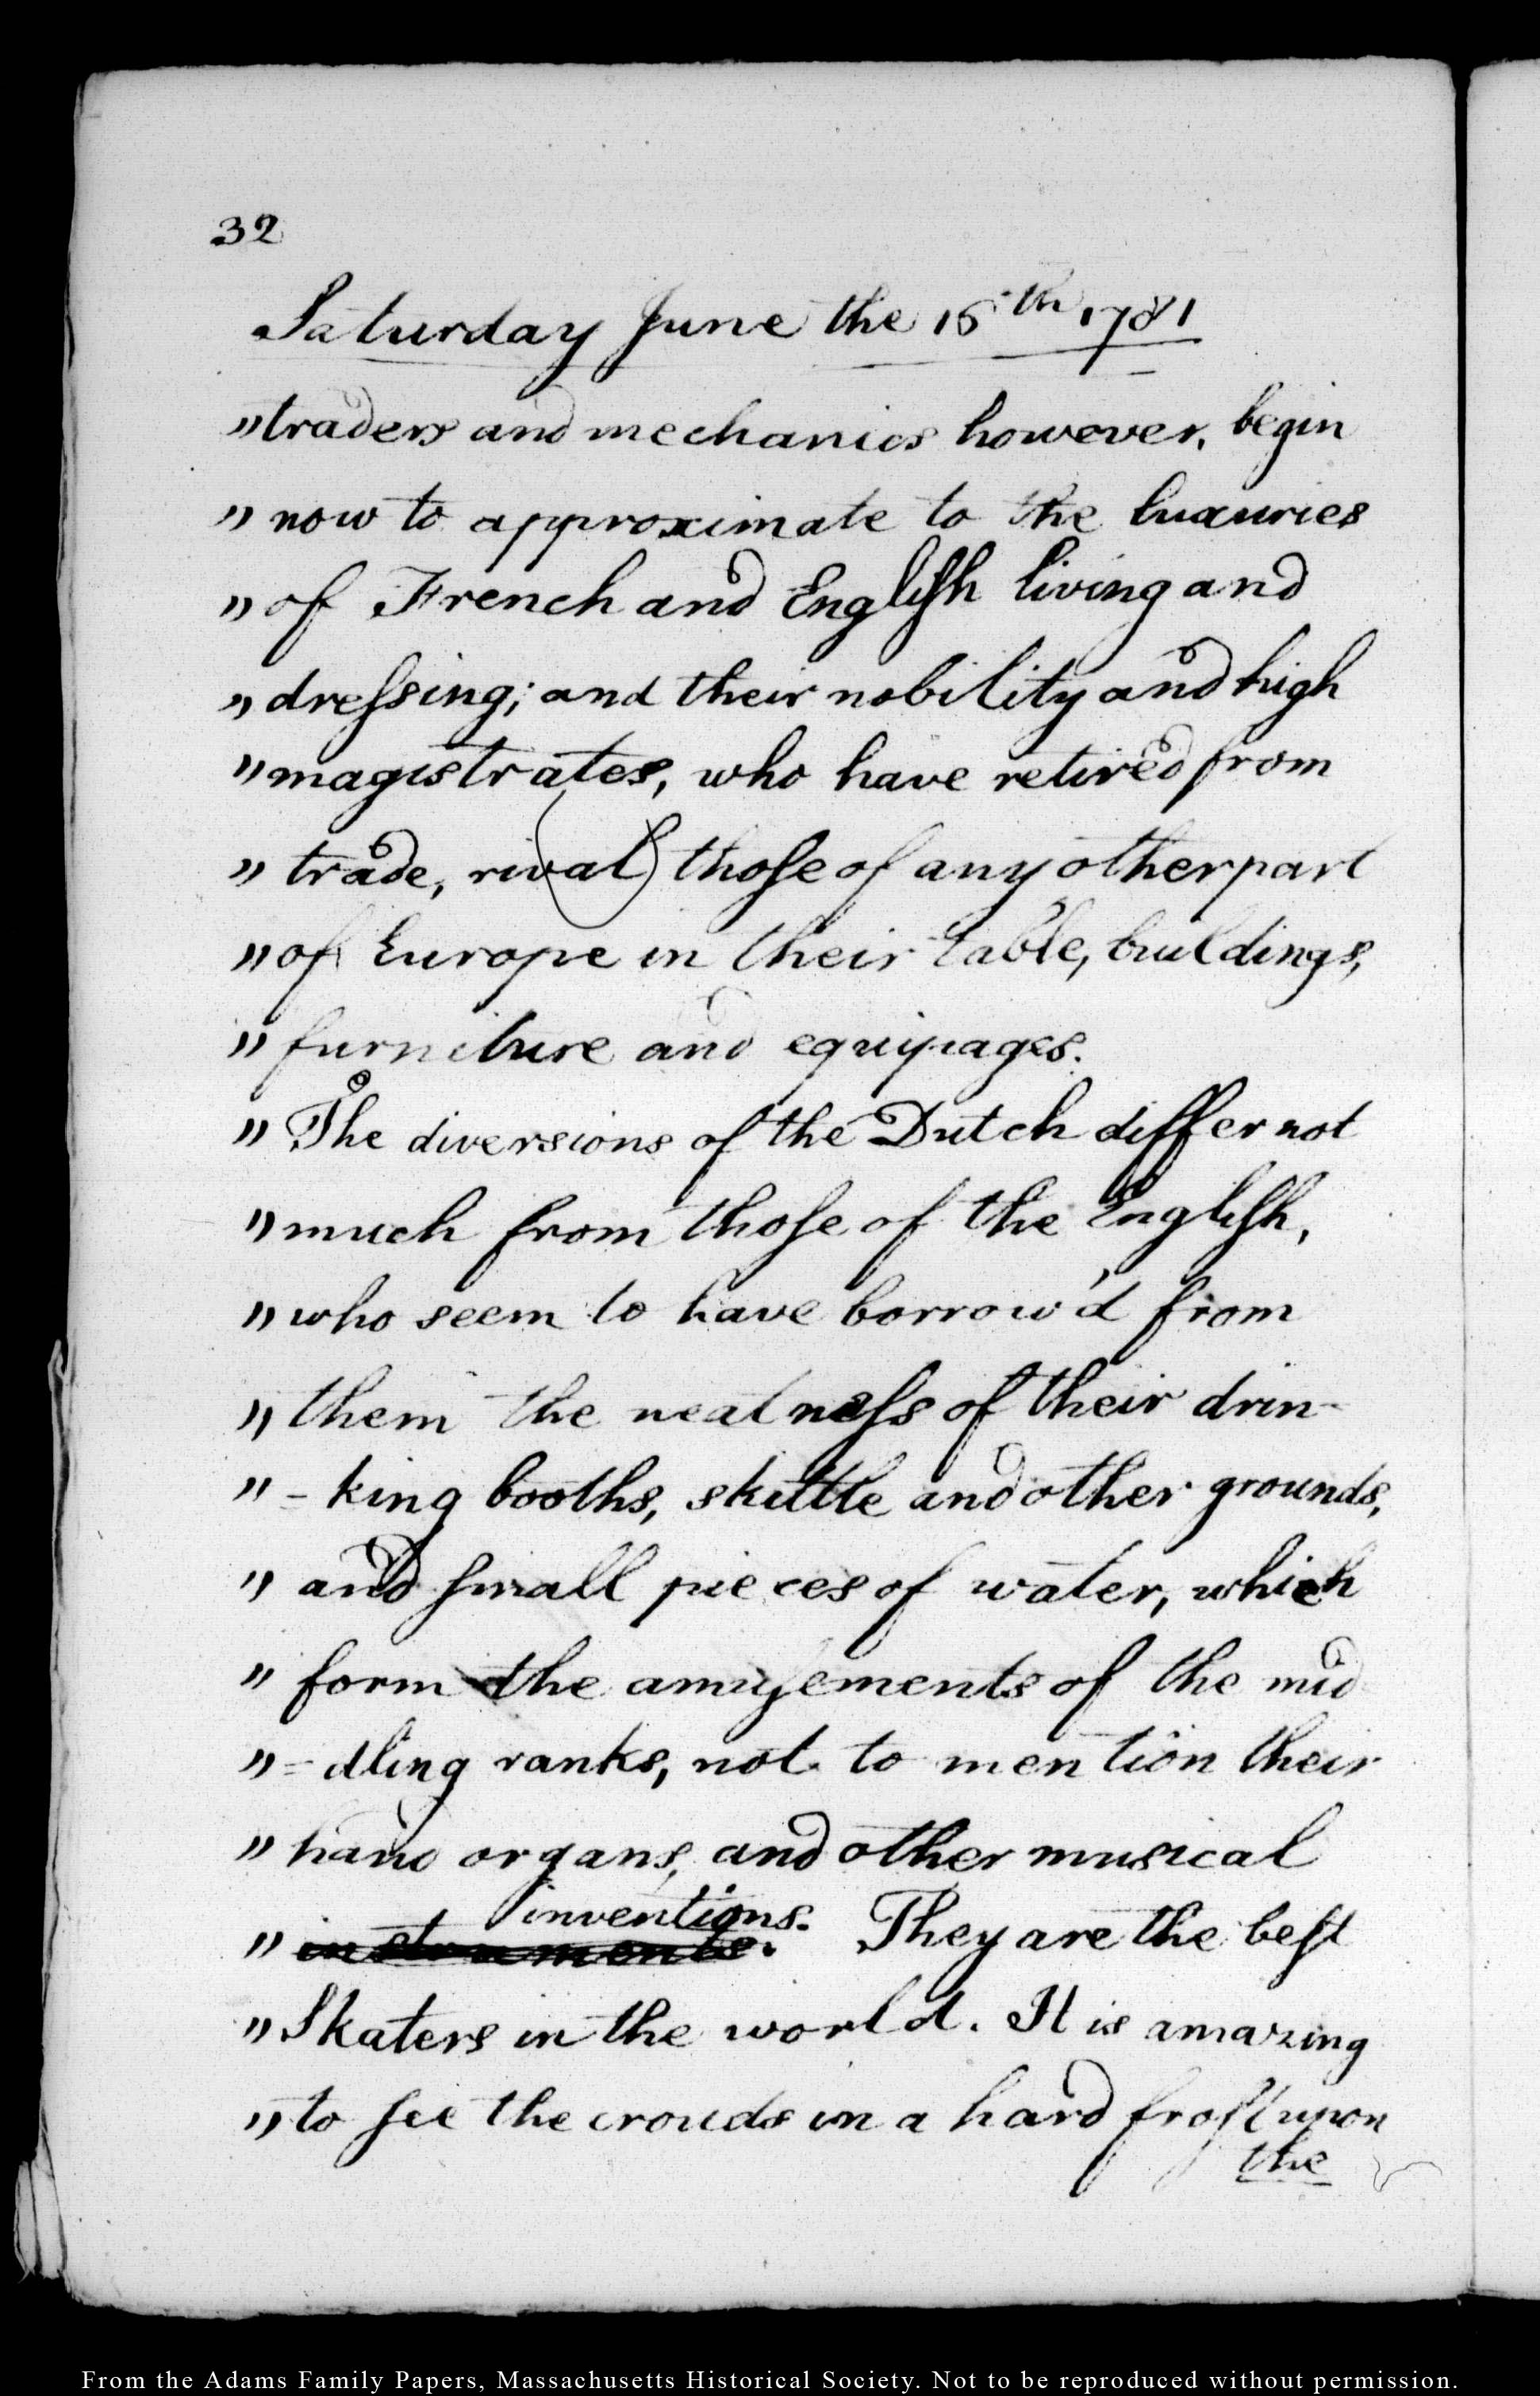 32
Saturday June the 16th 1781
"traders and mechanics however, begin
" now to approximate to the luxuries
" of French and Engliſh living and
" dreſsing; and their nobility and high
" magistrates, who have retired from
" trade, rival thoſe of any other part
" of Europe in their table, buildings,
" furniture and equipages.
" The diversions of the Dutch differ not
" much from thoſe of the Engliſh,
" who seem to have borrow'd from
" them the neatneſs of their drin-
" - king booths, skittle and other grounds,
" and ſmall pieces of water, which
" form the amuſements of the mid
" = dling ranks, not to mention their
" hand organs, and other musical
inventions.
" instruments. They are the beſt
" Skaters in the world. It is amazing
" to ſee the crouds in a hard froſt upon
the
From the Adams Family Papers, Massachusetts Historical Society. Not to be reproduced without permission.